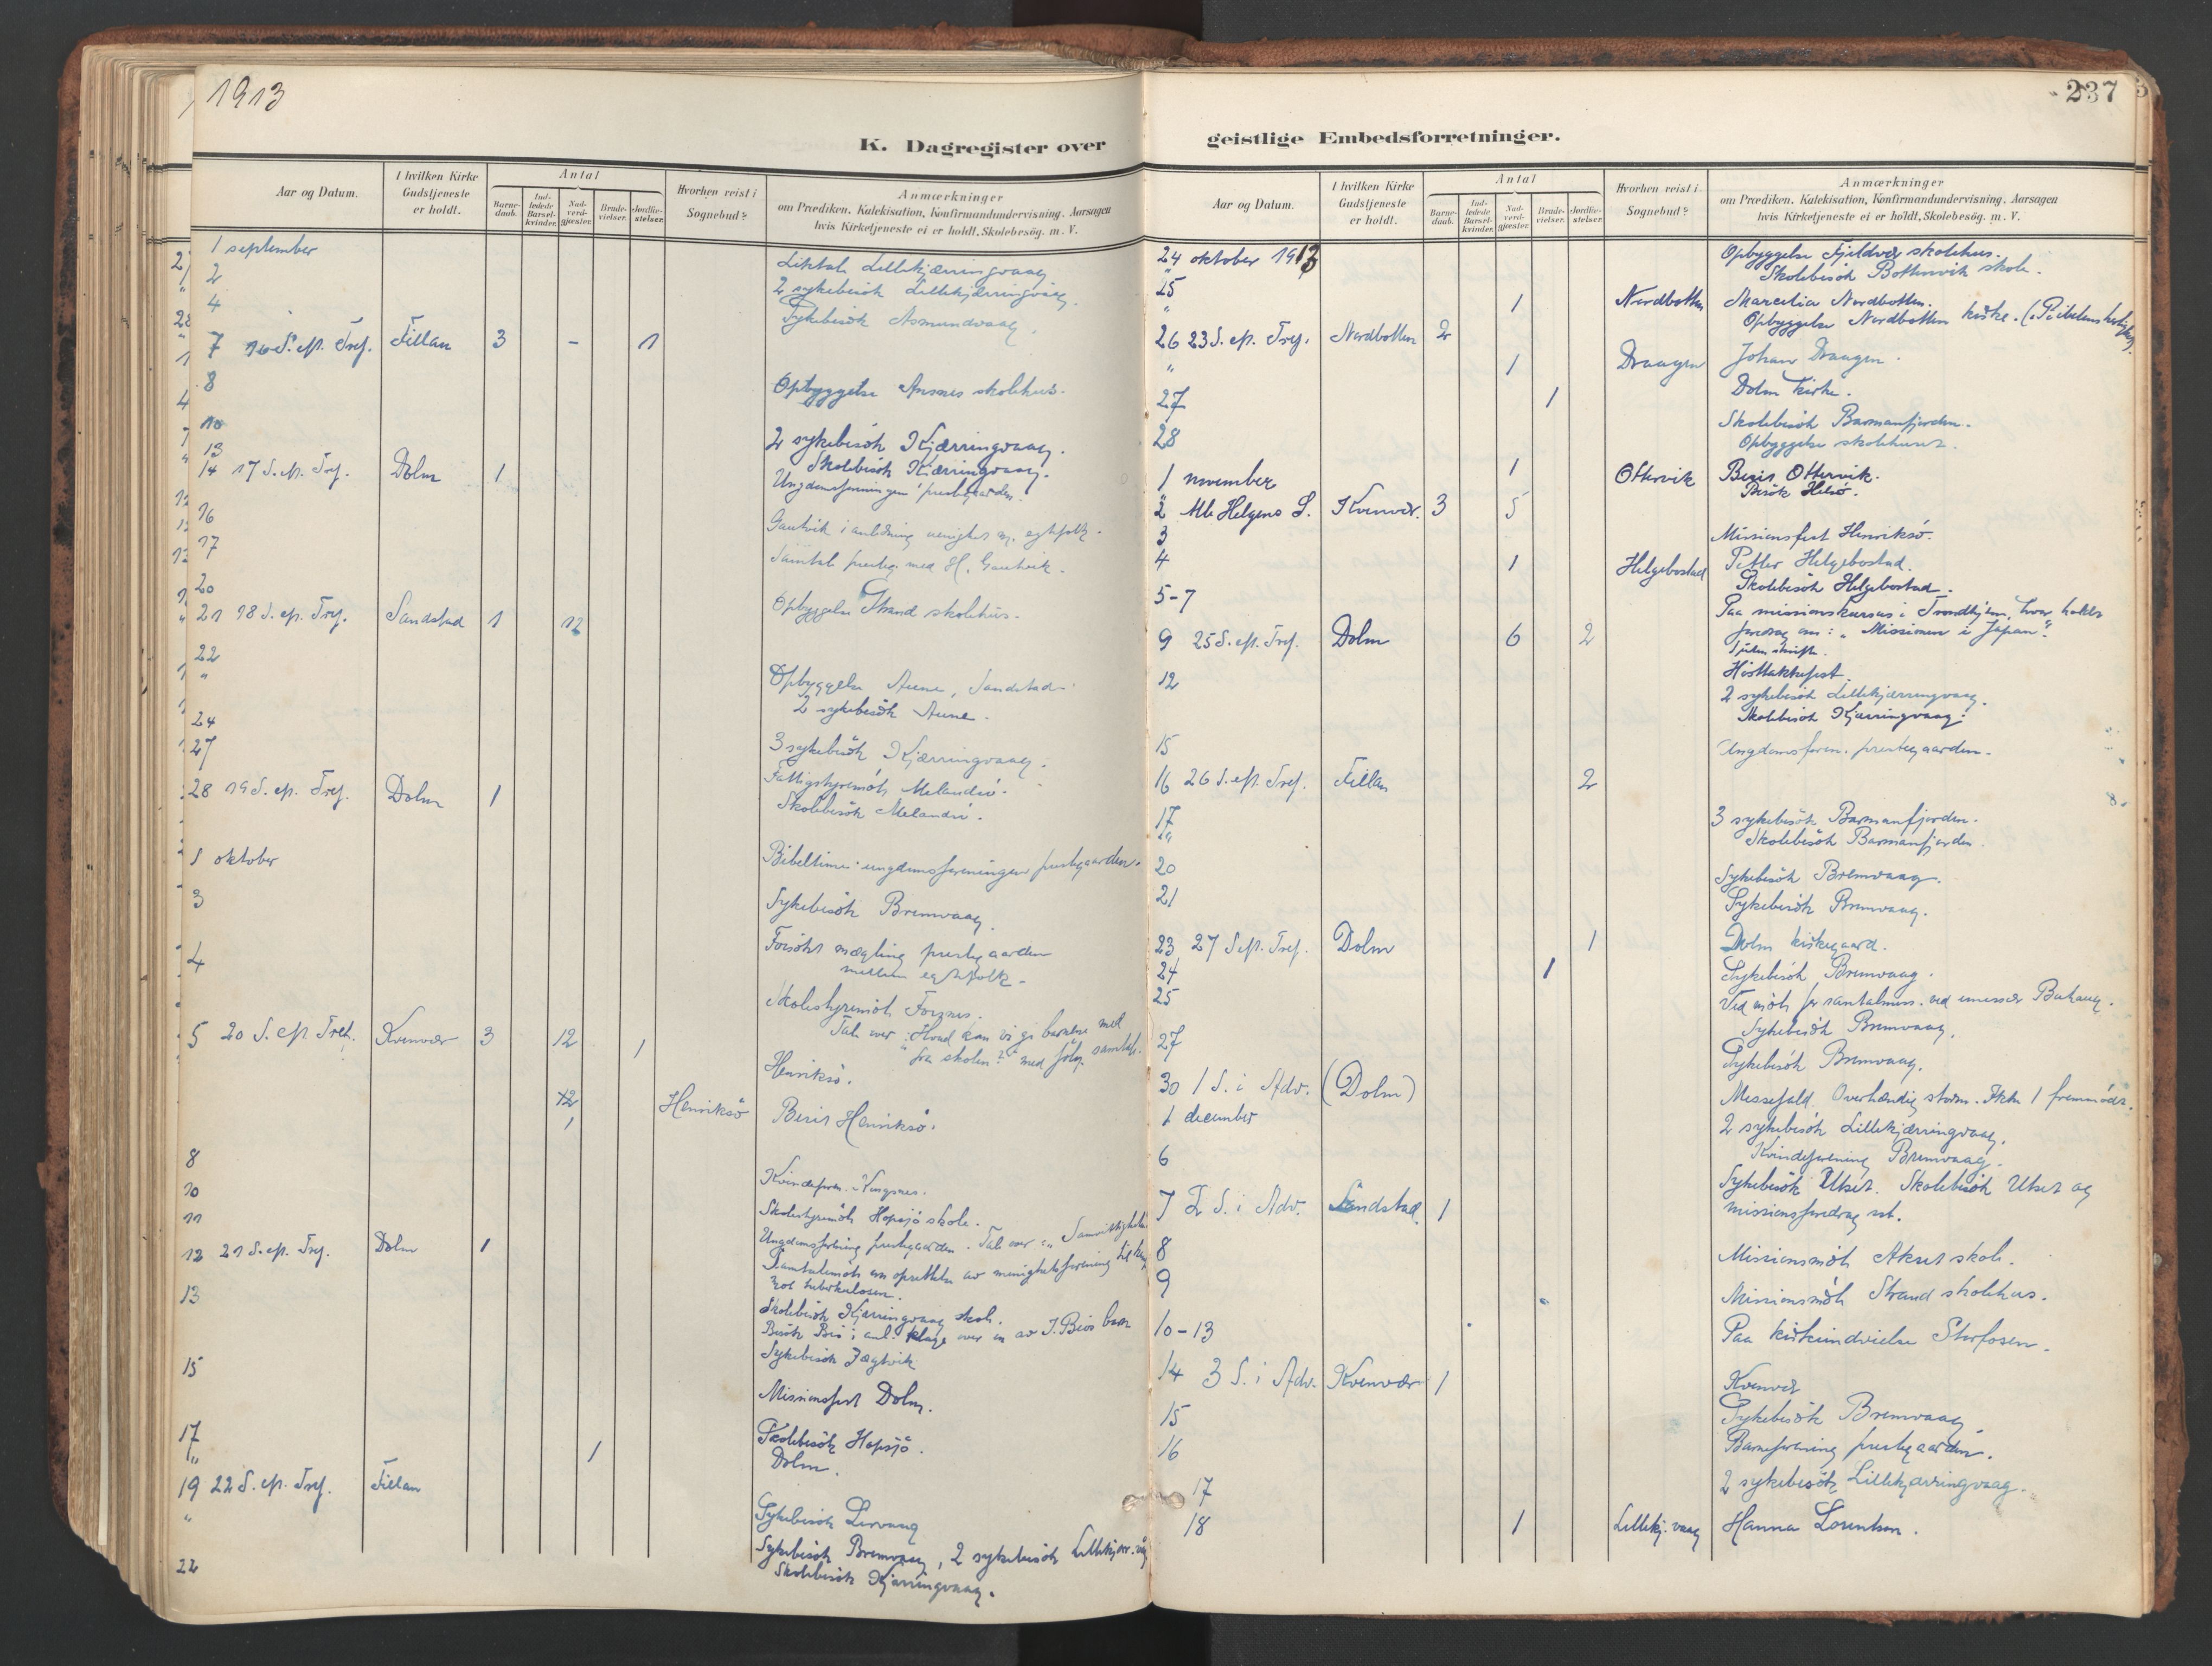 1913
K. Dagregister over
Aar og Datum.
I hvilken Kirke Gudstjeneste er holdt.
Antal
Barnedaab.
Indledede Barselkvinder.
Nadverdgjester.
Brudevielser.
Jordfæstelser.
Hvorhen reist i Sognebud?
Anmærkninger
om Prædiken, Katekisation, Konfirmandundervisning, Aarsagen
hvis Kirketjeneste ei er holdt, Skolebesög. m. V.
1 september
2 Liktale Lillekjærringvaag
4 2 sykebesök Lillekjærringvaag.
Sykebesök Asmundvaag.
7 16 S. ep. Tref. Fillan 3 - 1
8 Opbyggelse Ansnes skolehus.
10 2 sykebesök Kjærringvaag.
13 Skolebesök Kjærringvaag.
14 17 S. ep. Tref. Dolm 1 Ungdomsforeningen prestegaarden.
16 Gautvik i anledning uenighet m. egtefolk.
17 Samtale presteg. med H. Gautvik.
20 Opbyggelse Strand skolehus.
21 18 S. ep. Tref. Sandstad 1 12
22 Opbyggelse Aune, Sandstad.
" 2 sykebesök Aune.
24 3 sykebesök Kjærringvaag.
27 Fattigstyremöte Melandsö.
Skolebesök Melandsö.
28 19 S. ep. Tref. Dolm 1
1 oktober Bibeltime i ungdomsforeningen prestegaarden.
3 Sykebesök Bremvaag.
4 Forsökt mægling prestegaarden
mellem egtefolk.
Skolestyremöte Forsnes.
Tale over: "Hvad kan vi gi barnene med
fra skolen?" med fölg. samtale.
5 20 S. ep. Tref. Kvenvær 3 12 1 Henriksö.
12
1 Henriksö Berit Henriksö.
8 Kvindeforen. Kongsnes.
10 Skolestyremöte Hopsjö skole.
11 Ungdomsforening prestegaarden. Tale over: "Samvittigheten
12 21 S. ep. Tref. Dolm 1 Samtalemöte om oprettelse av menighetsforening til kamp
mot tuberkulosen.
13 Skolebesök Kjærringvaag skole.
Besök Bjö i anl. klage over en av J. Bjös barn
15 Sykebesök Jægtvik
Missionsfest Dolm.
17 Skolebesök Hopsjö.
" 1 Dolm.
19 22 S. ep. Tref. Fillan
" Sykebesök Lervaag
22 Sykebesök Bremvaag, 2 sykebesök Lillekjær.vaag
Skolebesök Kjærringvaag.
237
geistlige Embedsforretninger.
Aar og Datum.
I hvilken Kirke Gudstjeneste er holdt.
Antal
Barnedaab.
Indledede Barselkvinder.
Nadverdgjester.
Brudevielser.
Jordfæstelser.
Hvorhen reist i Sognebud?
Anmærkninger
om Prædiken, Katekisation, Konfirmandundervisning, Aarsagen
hvis Kirketjeneste ei er holdt, Skolebesög. m. V.
24 oktober 1913 Opbyggelse Fjeldvær skolehus.
25 Skolebesök Bottenvik skole.
" 1 Nordbotten Marcelia Nordbotten.
Opbyggelse Nordbotten kirke.
26 23 S. ep. Tref. Nordbotten 2
" 1 Draagen Johan Draagen.
27 1 Dolm kirke.
28 Skolebesök Barmanfjorden.
Opbyggelse skolehuset.
1 november 1 Ottervik Berit Ottervik.
Besök Helsö.
2 Alle Helgens S. Kvenvær. 3 5
3 Missionsfest Henriksö.
4 1 Helgebostad Petter Helgebostad.
Skolebesök Helgebostad.
5-7 Paa missionskursus i Trondhjem, hvor holdt
foredrag om: "Missionen i Japan".
9 25 S. ep. Tref. Dolm 6 2
Hösttakkefest.
12 2 sykebesök Lillekjærringvaag.
Skolebesök Kjærringvaag.
15 Ungdomsforen. prestegaarden.
16 26 S. ep. Tref. Fillan 2
17 3 sykebesök Barmanfjorden.
" Skolebesök Barmanfjorden.
20 Sykebesök Bremvaag.
21 Sykebesök Bremvaag.
23 27 S. ep. Tref. Dolm 1 Dolm kirkegaard.
24 1 Sykebesök Bremvaag.
25 Ved möte for santalmiss. ved emissær Bakaug.
Sykebesök Bremvaag.
27 Sykebesök Bremvaag.
30 1 S. i Adv. (Dolm) Messefald. Overhændig storm. 1 fremmödt.
1 december 2 sykebesök Lillekjærringvaag.
6 Kvindeforening Bremvaag.
Sykebesök Utset. Skolebesök Utset og
7 2 S. i Adv. Sandstad. 1 missionsforedrag sst.
8 Missionsmöte Akset skole.
9 Missionsmöte Strand skolehus.
10-13 Paa kirkeindvielse Storfosen.
14 3 S. i Adv. Kvenvær 1 Kvenvær
15 Sykebesök Bremvaag
16 Barneforening prestegaarden.
17 2 sykebesök Lillekjærringvaag.
18 1 Lillekj.vaag Hanna Lorentsen.